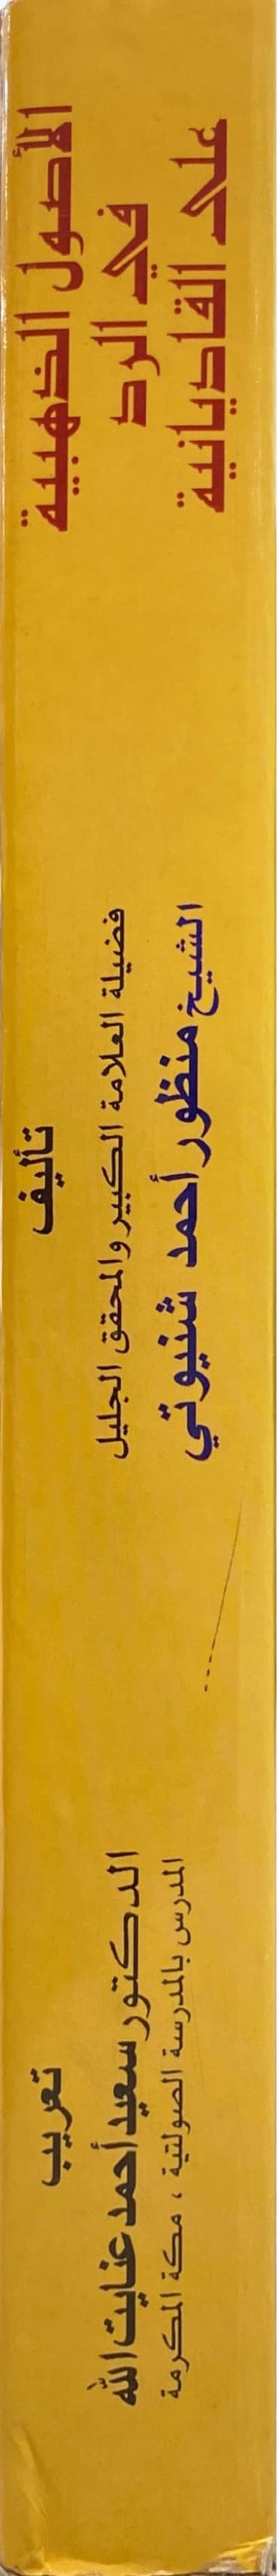 الأصول الذهبية
في الرد
على القاديانية
تأليف
فضيلة العلامة الكبير والمحقق الجليل
الشيخ منظور أحمد شنيوتي
تعريب
الدكتور سعيد أحمد عنايت الله
المدرس بالمدرسة الصولتية ، مكة المكرمة